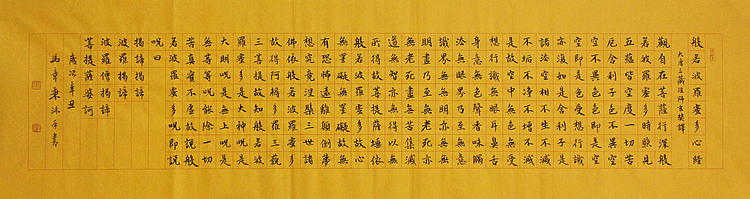 般若波羅蜜多心經
大唐三藏法師玄奘譯
觀自在菩薩行深般
若波羅蜜多時照見
五蘊皆空度一切苦
厄舍利子色不異空
空不異色色即是空
空即是色受想行識
亦復如是舍利子是
諸法空相不生不滅
不垢不淨不增不減
是故空中無色無受
想行識無眼耳鼻舌
身意無色聲香味觸
法無眼界乃至無意
識界無無明亦無無
明盡乃至無老死亦
無老死盡無苦集滅
道無智亦無得以無
所得故菩提薩埵依
般若波羅蜜多故心
無罣礙無罣礙故無
有恐怖遠離顛倒夢
想究竟涅槃三世諸
佛依般若波羅蜜多
故得阿耨多羅三藐
三菩提故知般若波
羅蜜多是大神呪是
大明呪是無上呪是
無等等呪能除一切
苦真實不虛故說般
若波羅蜜多呪即說
呪曰
揭諦揭諦
波羅揭諦
波羅僧揭諦
菩提薩婆訶
歲次辛丑
沐手書